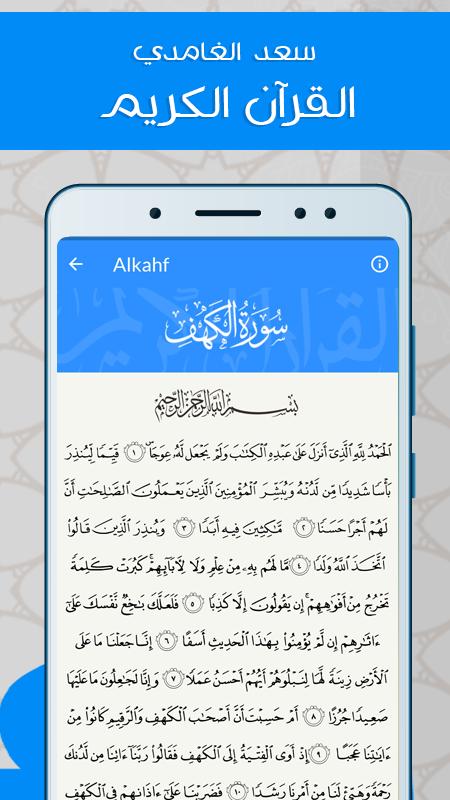 سعد الغامدي
القرآن الكريم
Alkahf
سُورَةُ الكَهْفِ
بِسْمِ اللَّهِ الرَّحْمَٰنِ الرَّحِيمِ
الْحَمْدُ لِلَّهِ الَّذِي أَنزَلَ عَلَىٰ عَبْدِهِ الْكِتَابَ وَلَمْ يَجْعَل لَّهُ عِوَجًا ۜ ١ قَيِّمًا لِّيُنذِرَ
بَأْسًا شَدِيدًا مِّن لَّدُنْهُ وَيُبَشِّرَ الْمُؤْمِنِينَ الَّذِينَ يَعْمَلُونَ الصَّالِحَاتِ أَنَّ
لَهُمْ أَجْرًا حَسَنًا ٢ مَّاكِثِينَ فِيهِ أَبَدًا ٣ وَيُنذِرَ الَّذِينَ قَالُوا
اتَّخَذَ اللَّهُ وَلَدًا ٤ مَّا لَهُم بِهِ مِنْ عِلْمٍ وَلَا لِآبَائِهِمْ ۚ كَبُرَتْ كَلِمَةً
تَخْرُجُ مِنْ أَفْوَاهِهِمْ ۚ إِن يَقُولُونَ إِلَّا كَذِبًا ٥ فَلَعَلَّكَ بَاخِعٌ نَّفْسَكَ عَلَىٰ
ءَاثَارِهِمْ إِن لَّمْ يُؤْمِنُوا بِهَٰذَا الْحَدِيثِ أَسَفًا ٦ إِنَّا جَعَلْنَا مَا عَلَى
الْأَرْضِ زِينَةً لَّهَا لِنَبْلُوَهُمْ أَيُّهُمْ أَحْسَنُ عَمَلًا ٧ وَإِنَّا لَجَاعِلُونَ مَا عَلَيْهَا
صَعِيدًا جُرُزًا ٨ أَمْ حَسِبْتَ أَنَّ أَصْحَابَ الْكَهْفِ وَالرَّقِيمِ كَانُوا مِنْ
ءَايَاتِنَا عَجَبًا ٩ إِذْ أَوَى الْفِتْيَةُ إِلَى الْكَهْفِ فَقَالُوا رَبَّنَا ءَاتِنَا مِن لَّدُنكَ
رَحْمَةً وَهَيِّئْ لَنَا مِنْ أَمْرِنَا رَشَدًا ١٠ فَضَرَبْنَا عَلَىٰ ءَاذَانِهِمْ فِي الْكَهْفِ